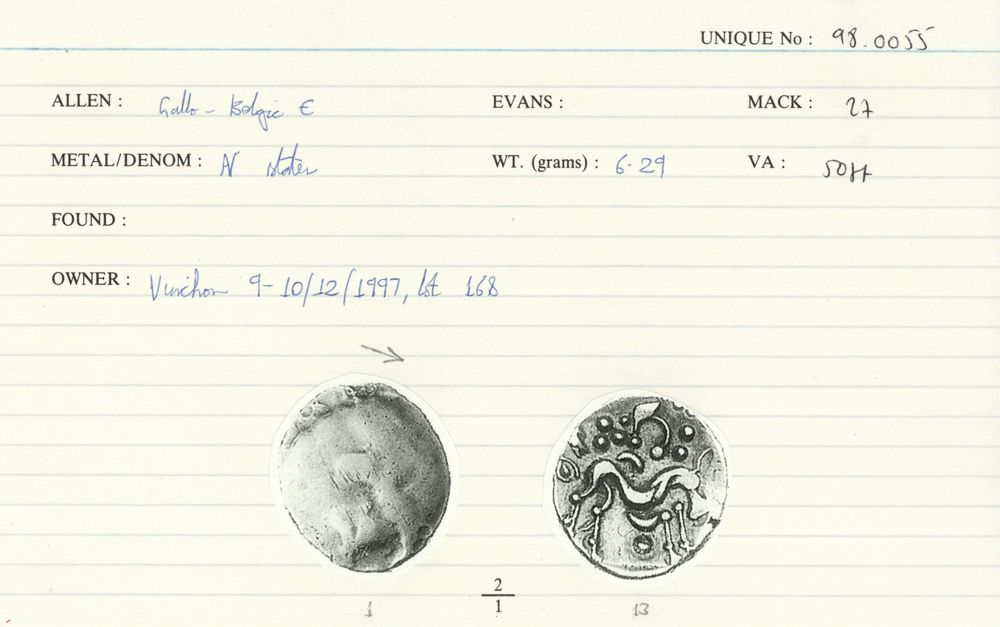 UNIQUE No : 98.0055
ALLEN : Gallo-Belgic E EVANS : MACK : 27
METAL/DENOM : AV stater WT. (grams) : 6.29 VA : 5011
FOUND :
OWNER : Vinchon 9-10/12/1997, lot 168
2
1
1 13